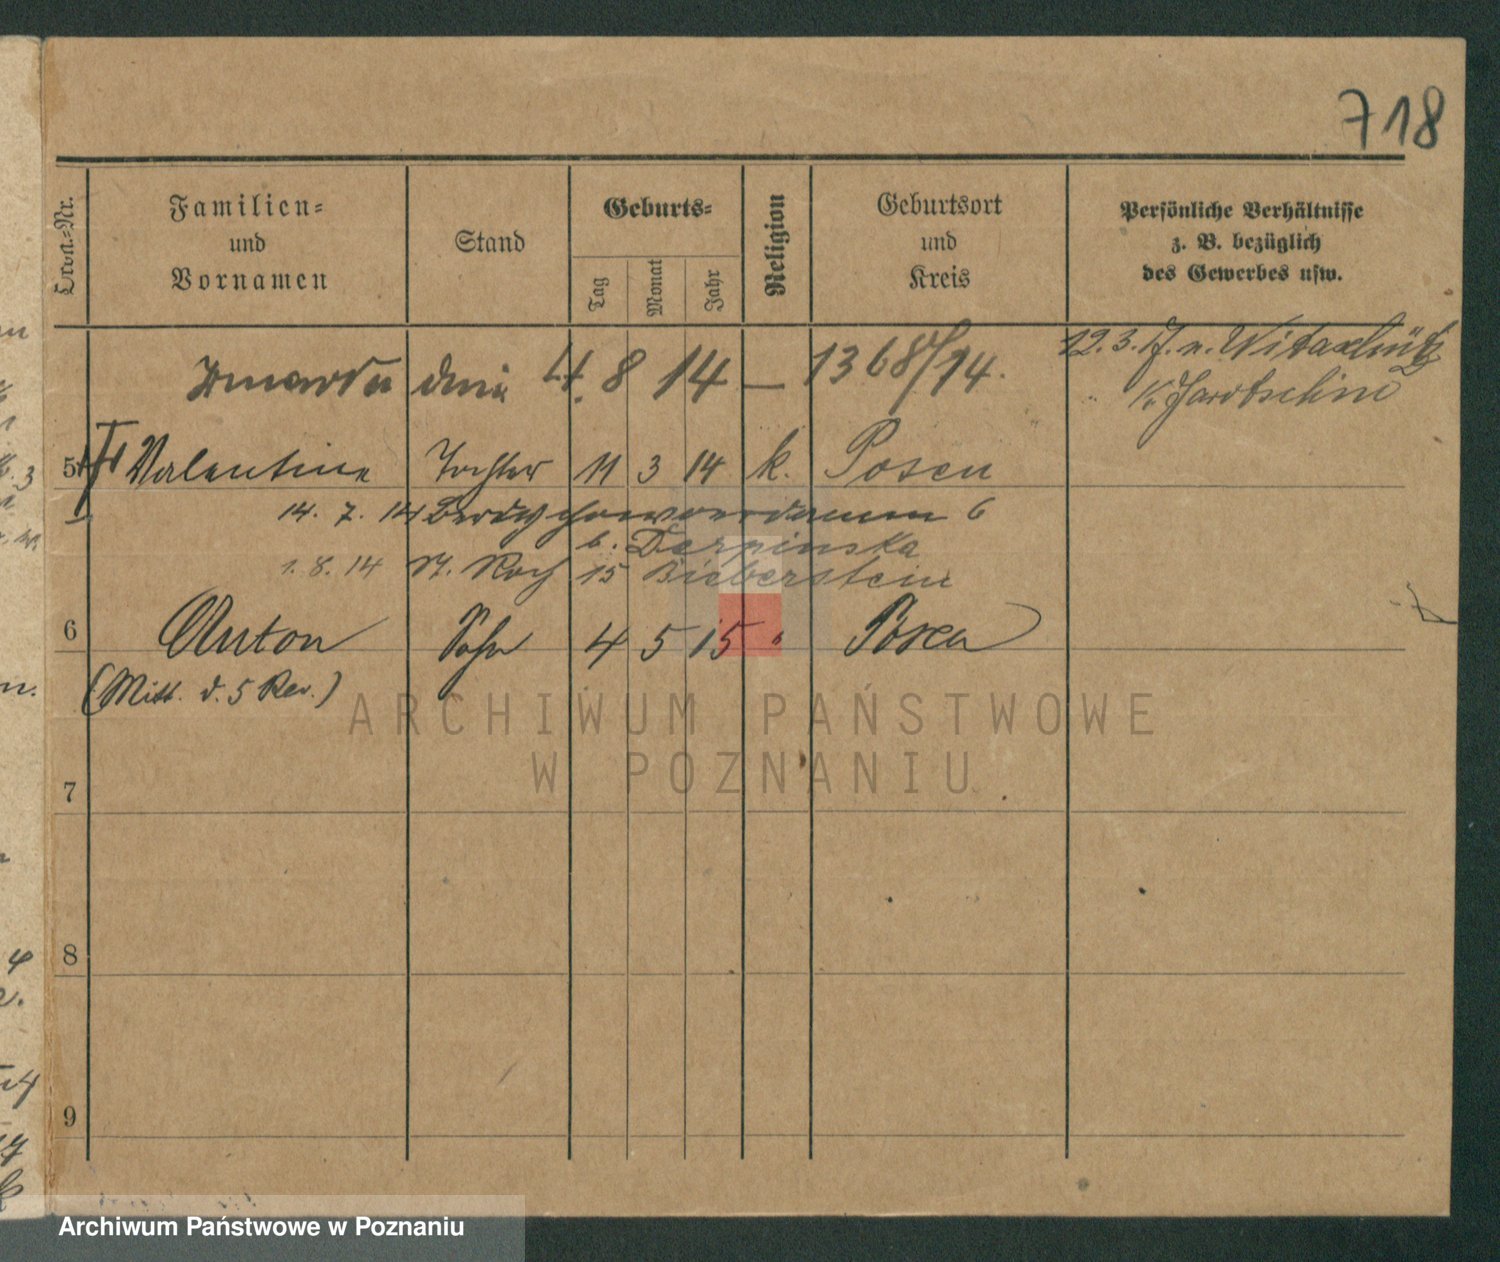 718
Ordn.-Nr.
Familien-
und
Vornamen
Stand
Geburts-
Tag
Monat
Jahr
Religion
Geburtsort
und
Kreis
Persönliche Verhältnisse
z. B. bezüglich
des Gewerbes usw.
12. 3. 17. n. Witaschütz
Kr. Jarotschin
Zmarła dnia 4. 8 14 — 1368/14.
5 Valentine Tochter 11 3 14 k. Posen
14. 7. 14 6
b. Darpinska
1. 8. 14 St. Roch 15 Bieberstein
6 Anton Sohn 4 5 15 " Posen
(Mitt. d. 5 Rev.)
ARCHIWUM PAŃSTWOWE
W POZNANIU
7
8
9
Archiwum Państwowe w Poznaniu